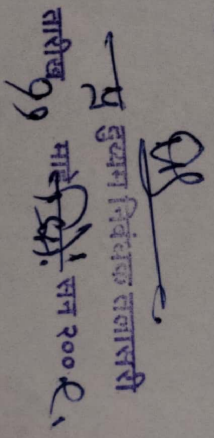 दुय्यम निबंधक तलासरी
तारीख ११ माहे सन २००९